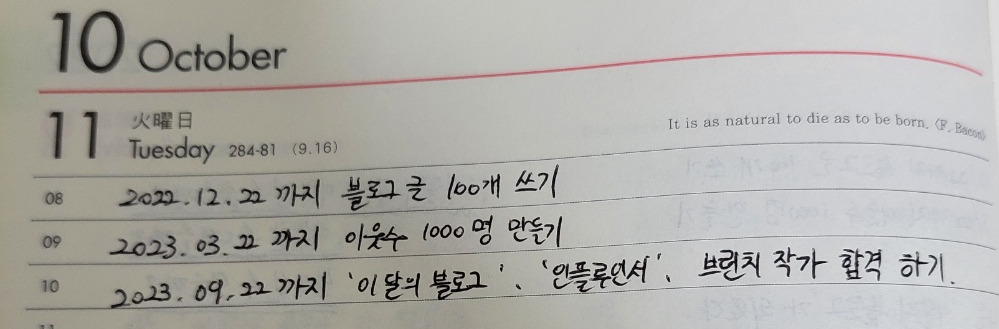 10 October
11 火曜日
Tuesday 284-81 (9.16)
It is as natural to die as to be born. (F. Bacon)
08 2022.12.22 까지 블로그 글 100개 쓰기
09 2023.03.22 까지 이웃수 1000명 만들기
10 2023.09.22 까지 '이달의 블로그', '인플루언서', 브런치 작가 합격 하기.
11